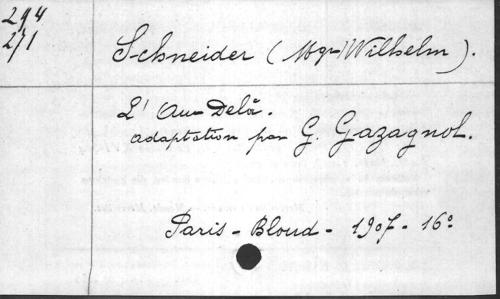 294
271
Schneider (Mgr Wilhelm).
L'Au-Delà.
adaptation par G. Gazagnol.
Paris - Bloud - 1907 - 16º